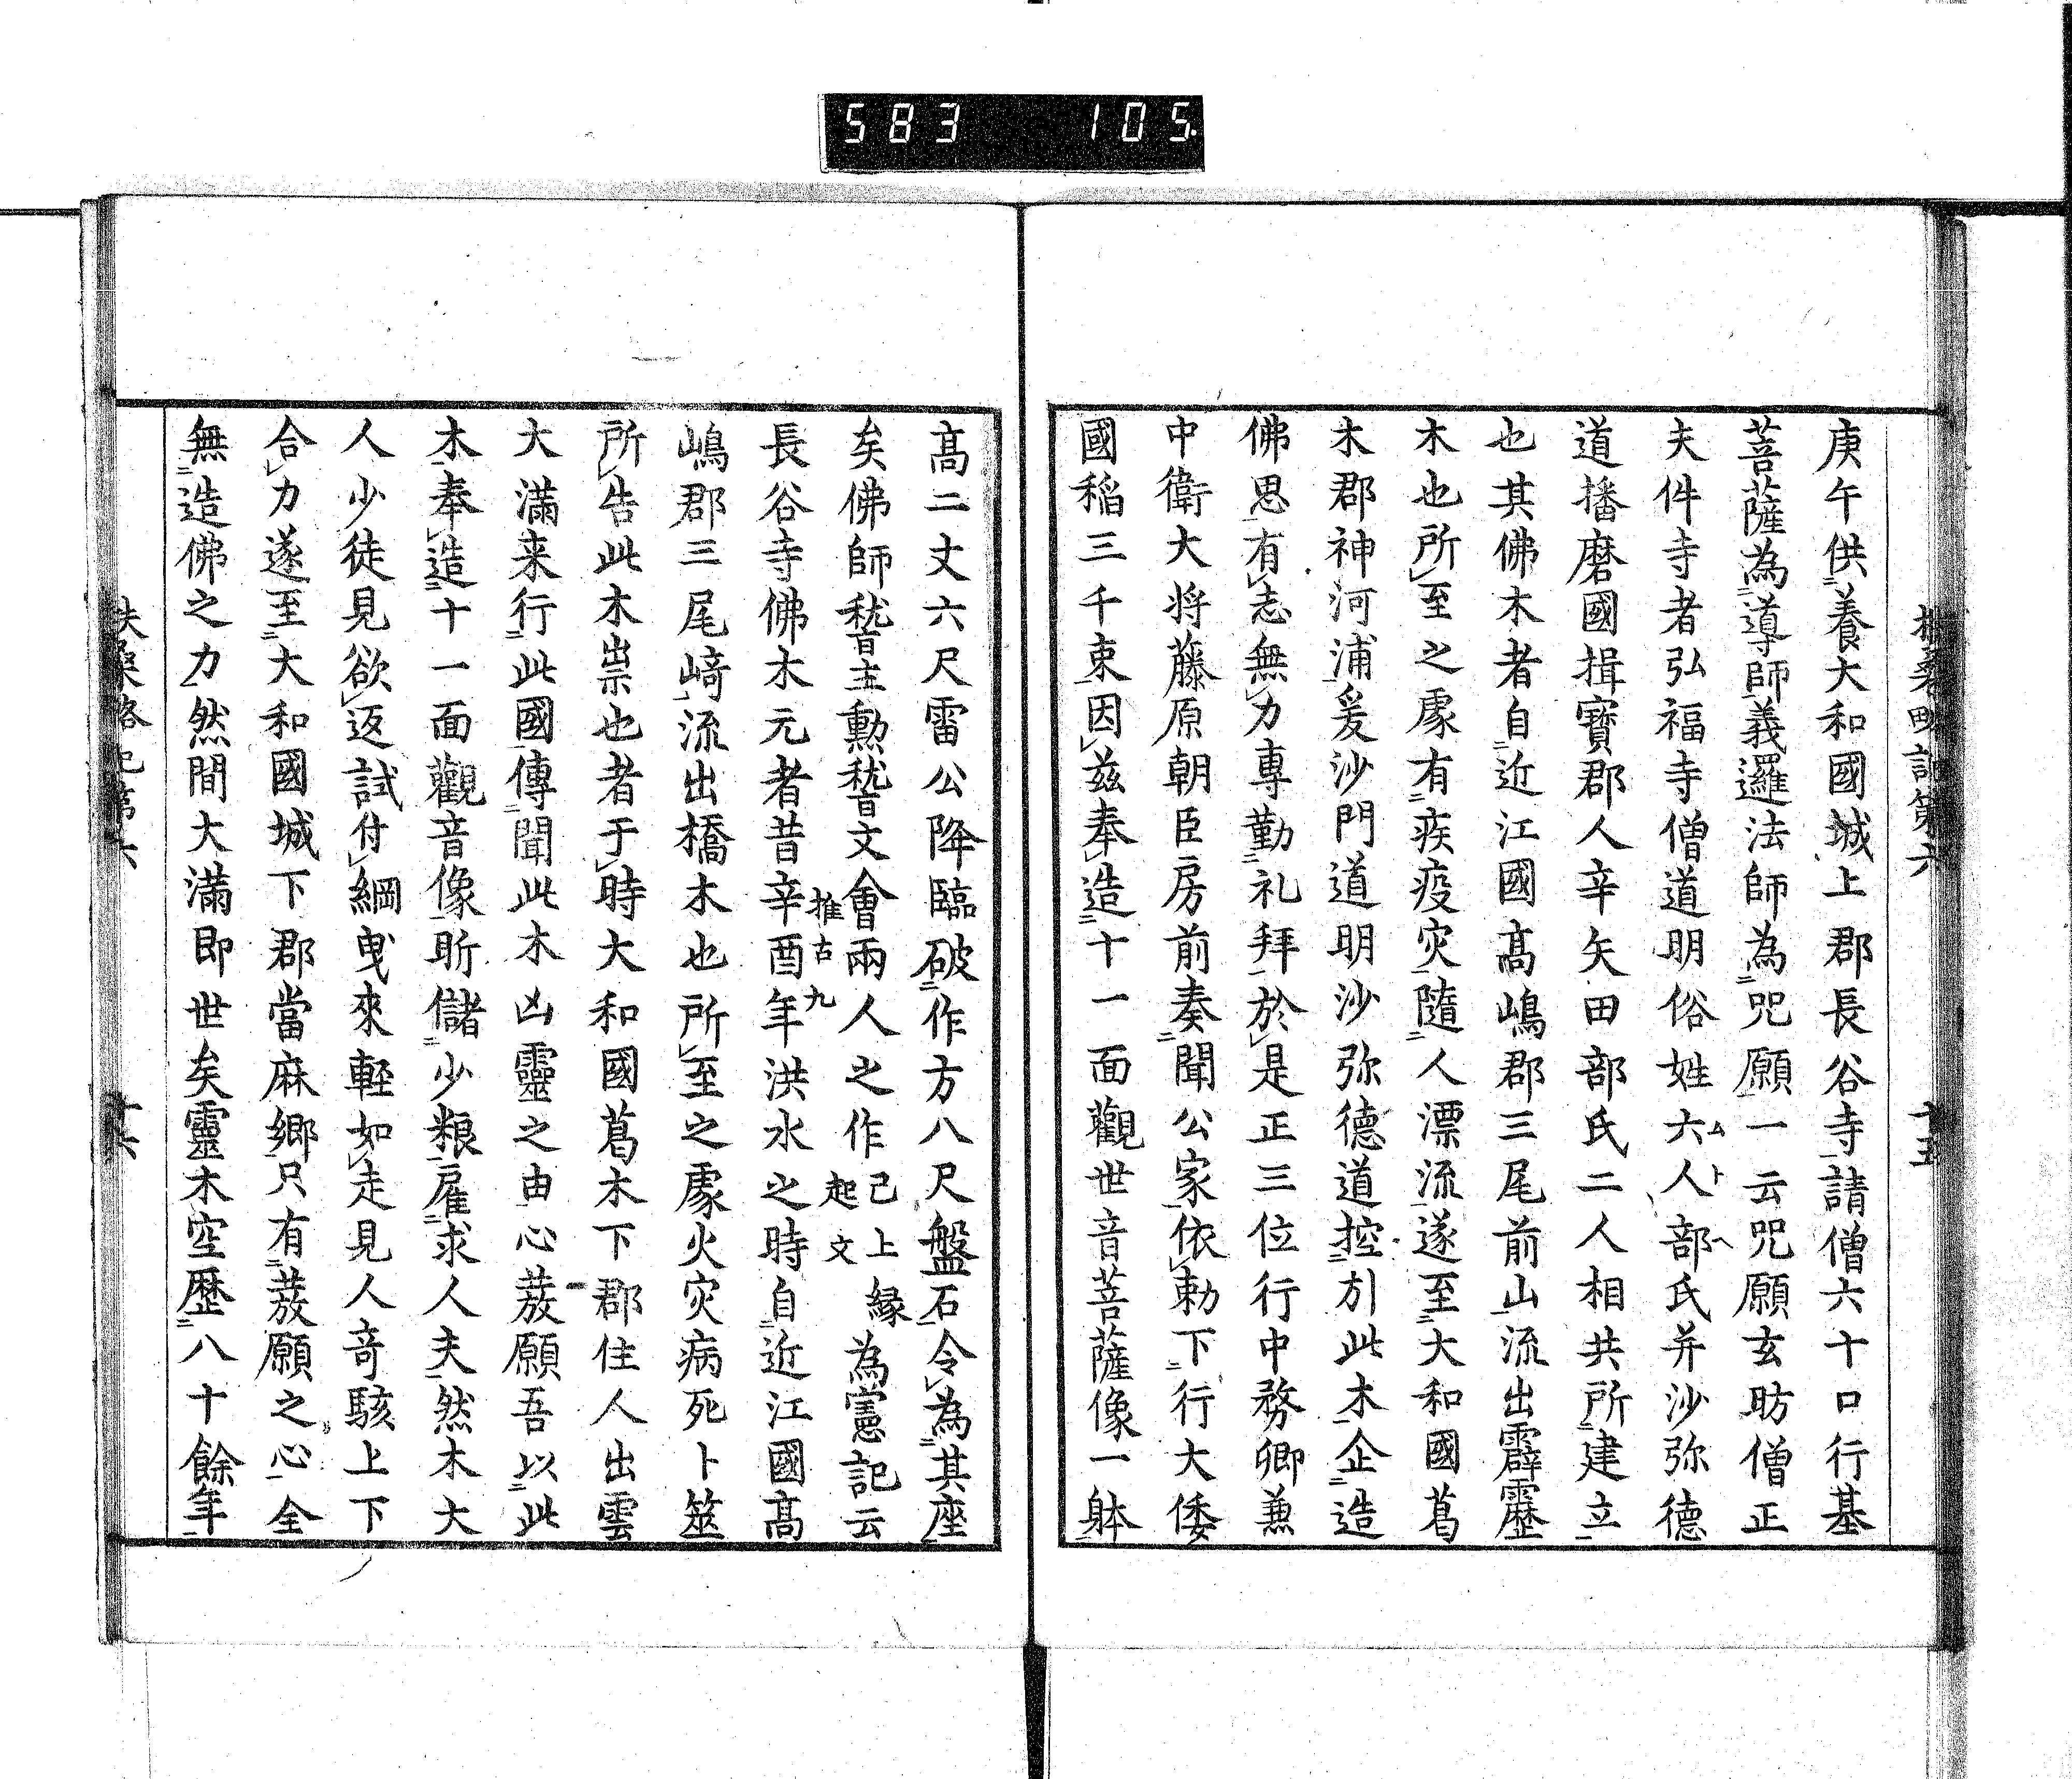 583 105.
扶桑略記第六 十五
庚午供養大和國城上郡長谷寺請僧六十口行基
菩薩為導師義邏法師為咒願一云咒願玄昉僧正
夫件寺者弘福寺僧道明俗姓六人部氏并沙弥德
ムトヘ
道播磨國揖寶郡人辛矢田部氏二人相共所建立
也其佛木者自近江國髙嶋郡三尾前山流出霹靂
木也所至之處有疾疫灾隨人漂流遂至大和國葛
木郡神河浦爰沙門道明沙弥德道控引此木企造
佛思有志無力專勤礼拜於是正三位行中務卿兼
中衛大将藤原朝臣房前奏聞公家依勅下行大倭
國稲三千束因茲奉造十一面觀世音菩薩像一躰
髙二丈六尺雷公降臨破作方八尺盤石令為其座
矣佛師嵆主勳嵆文會兩人之作已上縁起文為憲記云
長谷寺佛木元者昔辛酉年洪水之時自近江國髙
推古九
嶋郡三尾﨑流出橋木也所至之處火灾病死卜筮
所告此木祟也者于時大和國葛木下郡住人出雲
大滿来行此國傳聞此木凶靈之由心蕟願吾以此
木奉造十一面觀音像所儲少粮雇求人夫然木大
人少徒見欲返試付綱曳來輕如走見人竒駭上下
合力遂至大和國城下郡當麻鄉只有蕟願之心全
無造佛之力然間大滿即世矣靈木空歷八十餘年
扶桑略記第六 十六